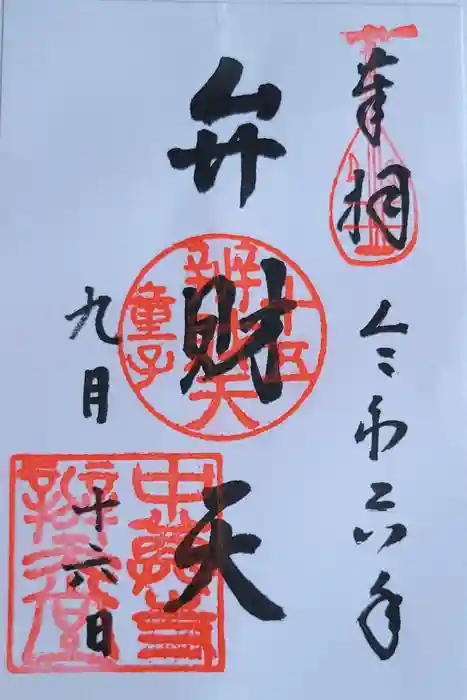 奉拝
令和六年
弁財天
九月
十六日
十五
童子
辨天堂